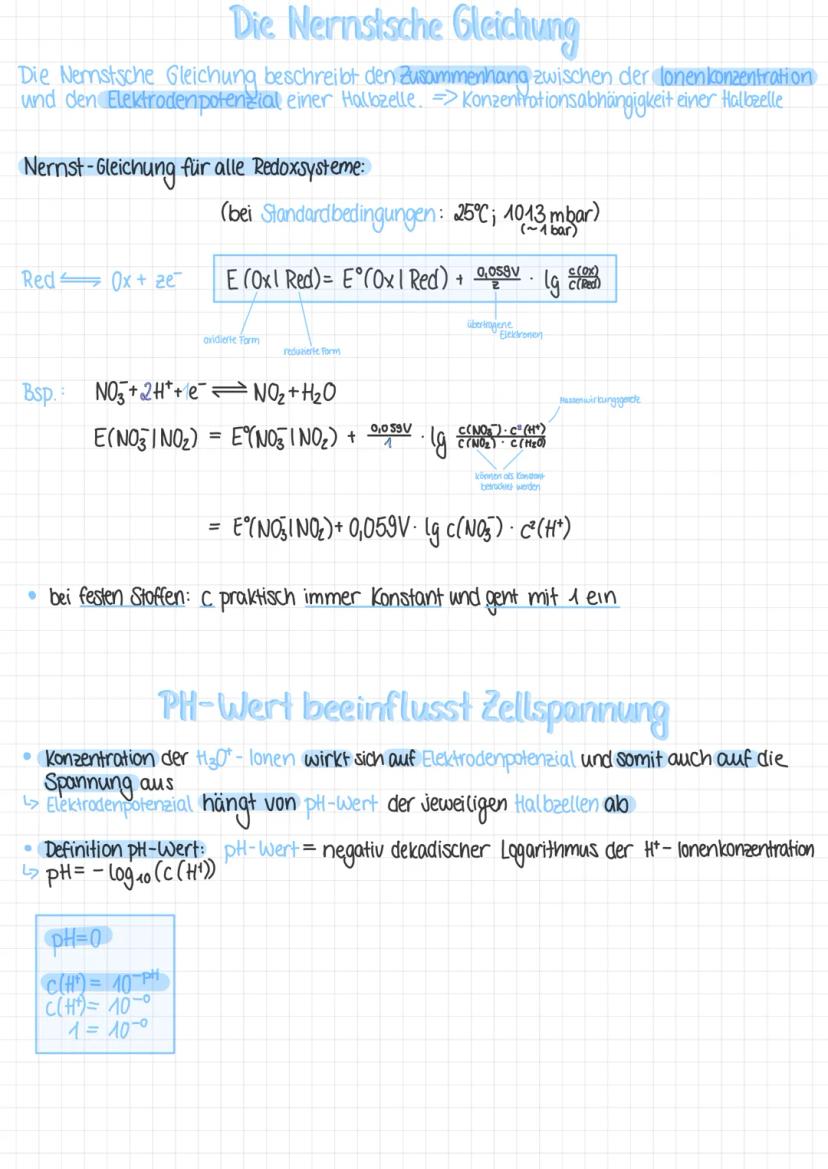 Die Nernstsche Gleichung
Die Nernstsche Gleichung beschreibt den Zusammenhang zwischen der Ionenkonzentration
und den Elektrodenpotenzial einer Halbzelle. => Konzentrationsabhängigkeit einer Halbzelle
Nernst-Gleichung für alle Redoxsysteme:
(bei Standardbedingungen: 25°C; 1013 mbar)
(~1 bar)
Red ⇌ Ox + ze⁻ E (Ox | Red) = E°(Ox | Red) + 0,059V/z · lg c(Ox)/c(Red)
oxidierte Form
reduzierte Form
übertragene
Elektronen
Bsp.: NO₃⁻ + 2H⁺ + 1e⁻ ⇌ NO₂ + H₂O
Massenwirkungsgesetz
E(NO₃⁻ | NO₂) = E°(NO₃⁻ | NO₂) + 0,059V/1 · lg c(NO₃⁻) · c²(H⁺)/c(NO₂) · c(H₂O)
können als Konstant
betrachtet werden
= E°(NO₃⁻ | NO₂) + 0,059V · lg c(NO₃⁻) · c²(H⁺)
• bei festen Stoffen: c praktisch immer Konstant und geht mit 1 ein
PH-Wert beeinflusst Zellspannung
• Konzentration der H₃O⁺ - Ionen wirkt sich auf Elektrodenpotenzial und somit auch auf die
Spannung aus
↳ Elektrodenpotenzial hängt von pH-Wert der jeweiligen Halbzellen ab
• Definition pH-Wert: pH-Wert = negativ dekadischer Logarithmus der H⁺ - Ionenkonzentration
↳ pH = - log₁₀ (c (H⁺))
pH=0
c(H⁺) = 10⁻ᵖᴴ
c(H⁺) = 10⁻⁰
1 = 10⁻⁰